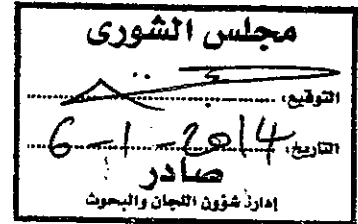 مجلس الشورى
التوقيع:
التاريخ: 6-1-2014
صادر
إدارة شؤون اللجان والبحوث